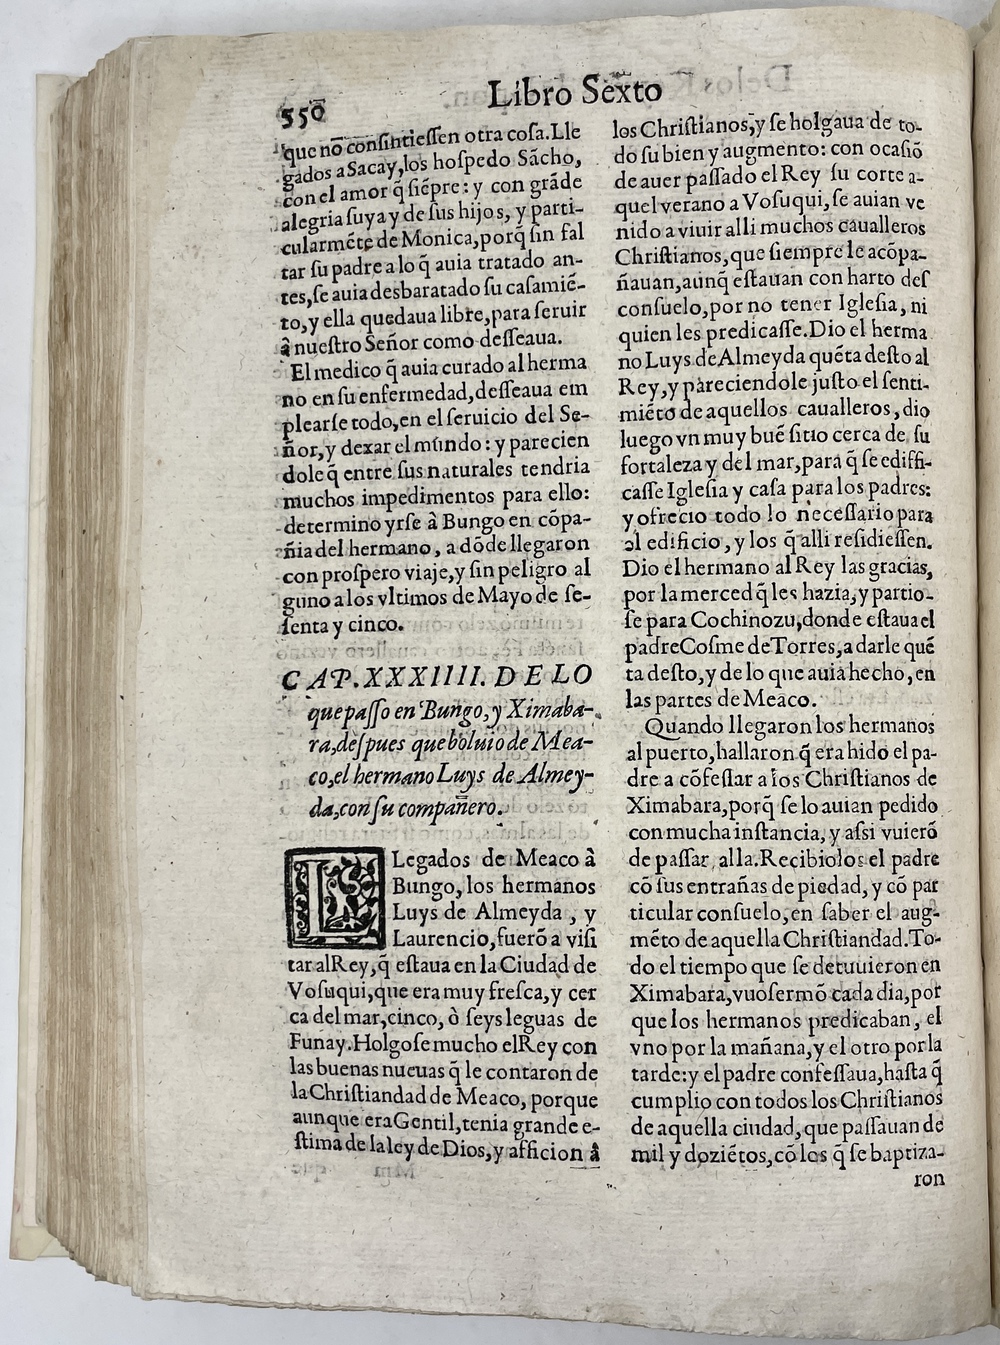 550
Libro Sexto
que nõ conſintieſſen otra coſa. Lle
gados a Sacay, los hoſpedo Sãcho,
con el amor q̃ ſiẽpre: y con grãde
alegria ſuya y de ſus hijos, y parti-
cularmẽte de Monica, porq̃ ſin fal
tar ſu padre a lo q̃ auia tratado an-
tes, ſe auia desbaratado ſu caſamiẽ-
to, y ella quedaua libre, para ſeruir
â nueſtro Señor como deſſeaua.
El medico q̃ auia curado al herma
no en ſu enfermedad, deſſeaua em
plearſe todo, en el ſeruicio del Se-
ñor, y dexar el mundo: y parecien
dole q̃ entre ſus naturales tendria
muchos impedimentos para ello:
determino yrſe â Bungo en cõpa-
ñia del hermano, a dõde llegaron
con proſpero viaje, y ſin peligro al
guno a los vltimos de Mayo de ſe-
ſenta y cinco.
CAP. XXXIIII. DE LO
que paſſo en Bungo, y Ximaba-
ra, deſpues que boluio de Mea-
co, el hermano Luys de Almey-
da, con ſu compañero.
LLegados de Meaco à
Bungo, los hermanos
Luys de Almeyda, y
Laurencio, fuerõ a viſi
tar al Rey, q̃ eſtaua en la Ciudad de
Voſuqui, que era muy freſca, y cer
ca del mar, cinco, ò ſeys leguas de
Funay. Holgoſe mucho el Rey con
las buenas nueuas q̃ le contaron de
la Chriſtiandad de Meaco, porque
aunque era Gentil, tenia grande e-
ſtima de la ley de Dios, y afficion â
los Chriſtianos, y ſe holgaua de to-
do ſu bien y augmento: con ocaſiõ
de auer paſſado el Rey ſu corte a-
quel verano a Voſuqui, ſe auian ve
nido a viuir alli muchos caualleros
Chriſtianos, que ſiempre le acõpa-
ñauan, aunq̃ eſtauan con harto deſ
conſuelo, por no tener Igleſia, ni
quien les predicaſſe. Dio el herma
no Luys de Almeyda quẽta deſto al
Rey, y pareciendole juſto el ſenti-
miẽto de aquellos caualleros, dio
luego vn muy buẽ ſitio cerca de ſu
fortaleza y del mar, para q̃ ſe ediffi-
caſſe Igleſia y caſa para los padres:
y ofrecio todo lo neceſſario para
el edificio, y los q̃ alli reſidieſſen.
Dio el hermano al Rey las gracias,
por la merced q̃ les hazia, y partio-
ſe para Cochinozu, donde eſtaua el
padre Coſme de Torres, a darle quẽ
ta deſto, y de lo que auia hecho, en
las partes de Meaco.
Quando llegaron los hermanos
al puerto, hallaron q̃ era hido el pa-
dre a cõfeſſar a los Chriſtianos de
Ximabara, porq̃ ſe lo auian pedido
con mucha inſtancia, y aſsi vuierõ
de paſſar alla. Recibiolos el padre
cõ ſus entrañas de piedad, y cõ par
ticular conſuelo, en ſaber el aug-
mẽto de aquella Chriſtiandad. To-
do el tiempo que ſe detuuieron en
Ximabara, vuo ſermõ cada dia, por
que los hermanos predicaban, el
vno por la mañana, y el otro por la
tarde: y el padre confeſſaua, haſta q̃
cumplio con todos los Chriſtianos
de aquella ciudad, que paſſauan de
mil y doziẽtos, cõ los q̃ ſe baptiza-
ron